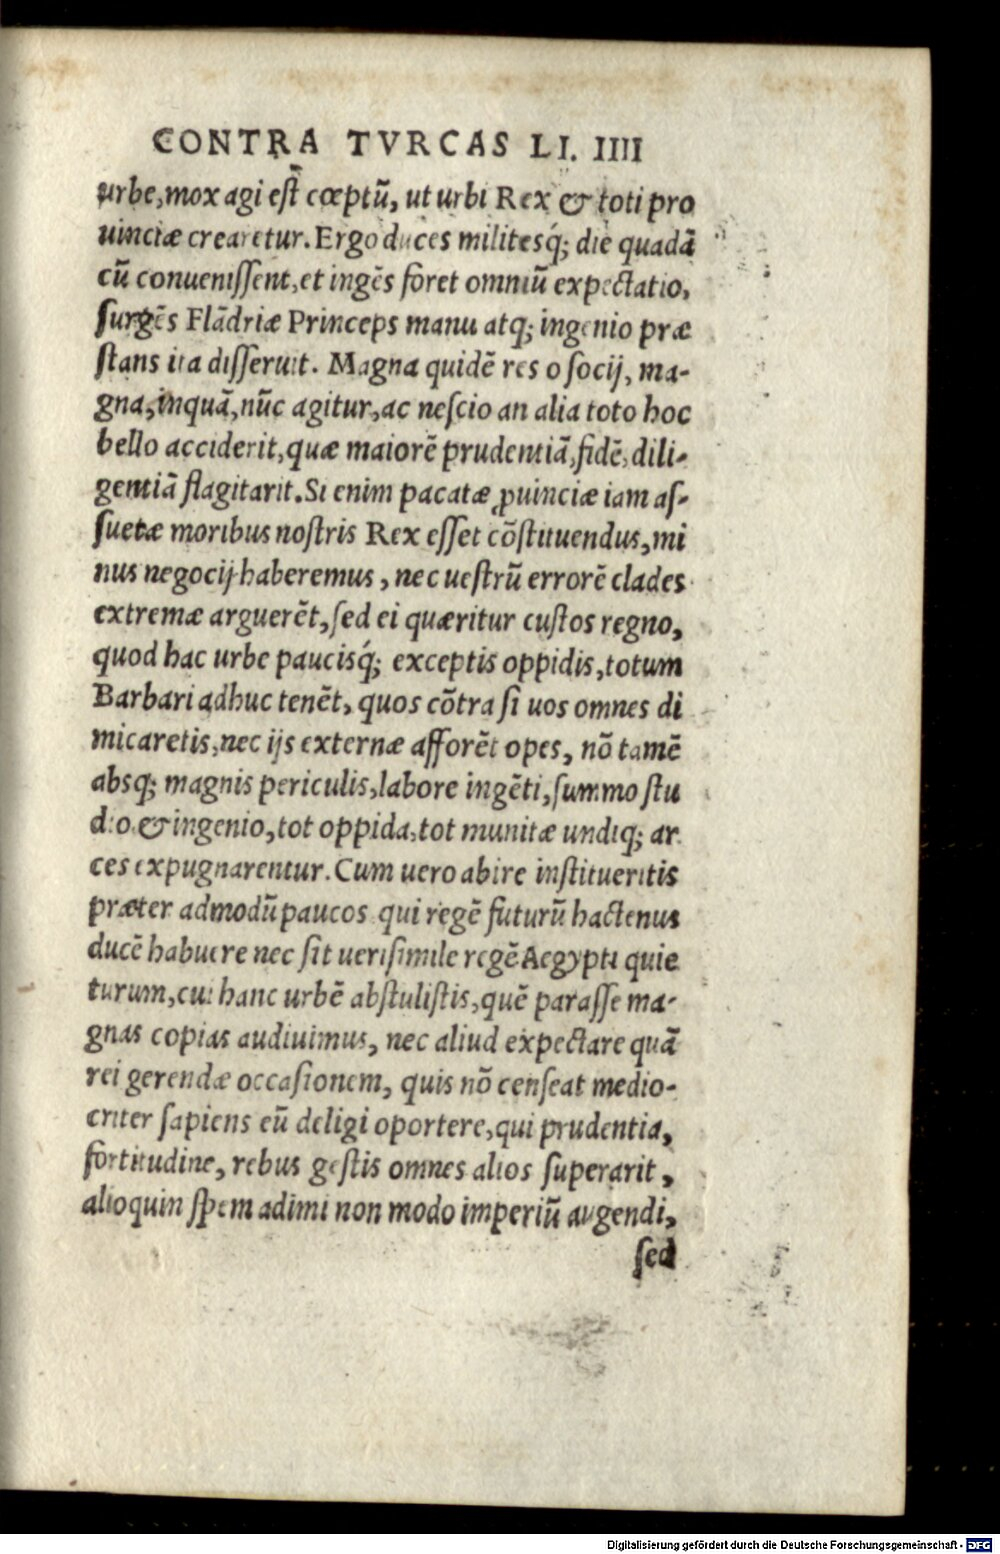 CONTRA TVRCAS LI. IIII
urbe, mox agi est̄ cœptũ, ut urbi Rex & toti pro
uinciæ crearetur. Ergo duces militesq́; die quadã
cũ conuenissent, et ingẽs foret omniũ expectatio,
surgẽs Flãdriæ Princeps manu atq; ingenio præ
stans ita disseruit. Magna quidẽ res o socij, ma-
gna, inquã, nũc agitur, ac nescio an alia toto hoc
bello acciderit, quæ maiorẽ prudentiã, fidẽ, dili-
gentiã flagitarit. Si enim pacatæ ꝓuinciæ iam as-
suetæ moribus nostris Rex esset cõstituendus, mi
nus negocij haberemus, nec uestrũ errorẽ clades
extremæ arguerẽt, sed ei quæritur custos regno,
quod hac urbe paucisq́; exceptis oppidis, totum
Barbari adhuc tenẽt, quos cõtra si uos omnes di
micaretis, nec ijs externæ afforẽt opes, nõ tamẽ
absq; magnis periculis, labore ingẽti, summo stu
dio & ingenio, tot oppida, tot munitæ undiq; ar
ces expugnarentur. Cum uero abire institueritis
præter admodũ paucos qui regẽ futurũ hactenus
ducẽ habuere nec sit uerisimile regẽ Aegypti quie
turum, cui hanc urbẽ abstulistis, quẽ parasse ma-
gnas copias audiuimus, nec aliud expectare quã
rei gerendæ occasionem, quis nõ censeat medio-
criter sapiens eũ deligi oportere, qui prudentia,
fortitudine, rebus gestis omnes alios superarit,
alioquin spem adimi non modo imperiũ augendi,
sed
Digitalisierung gefördert durch die Deutsche Forschungsgemeinschaft - DFG